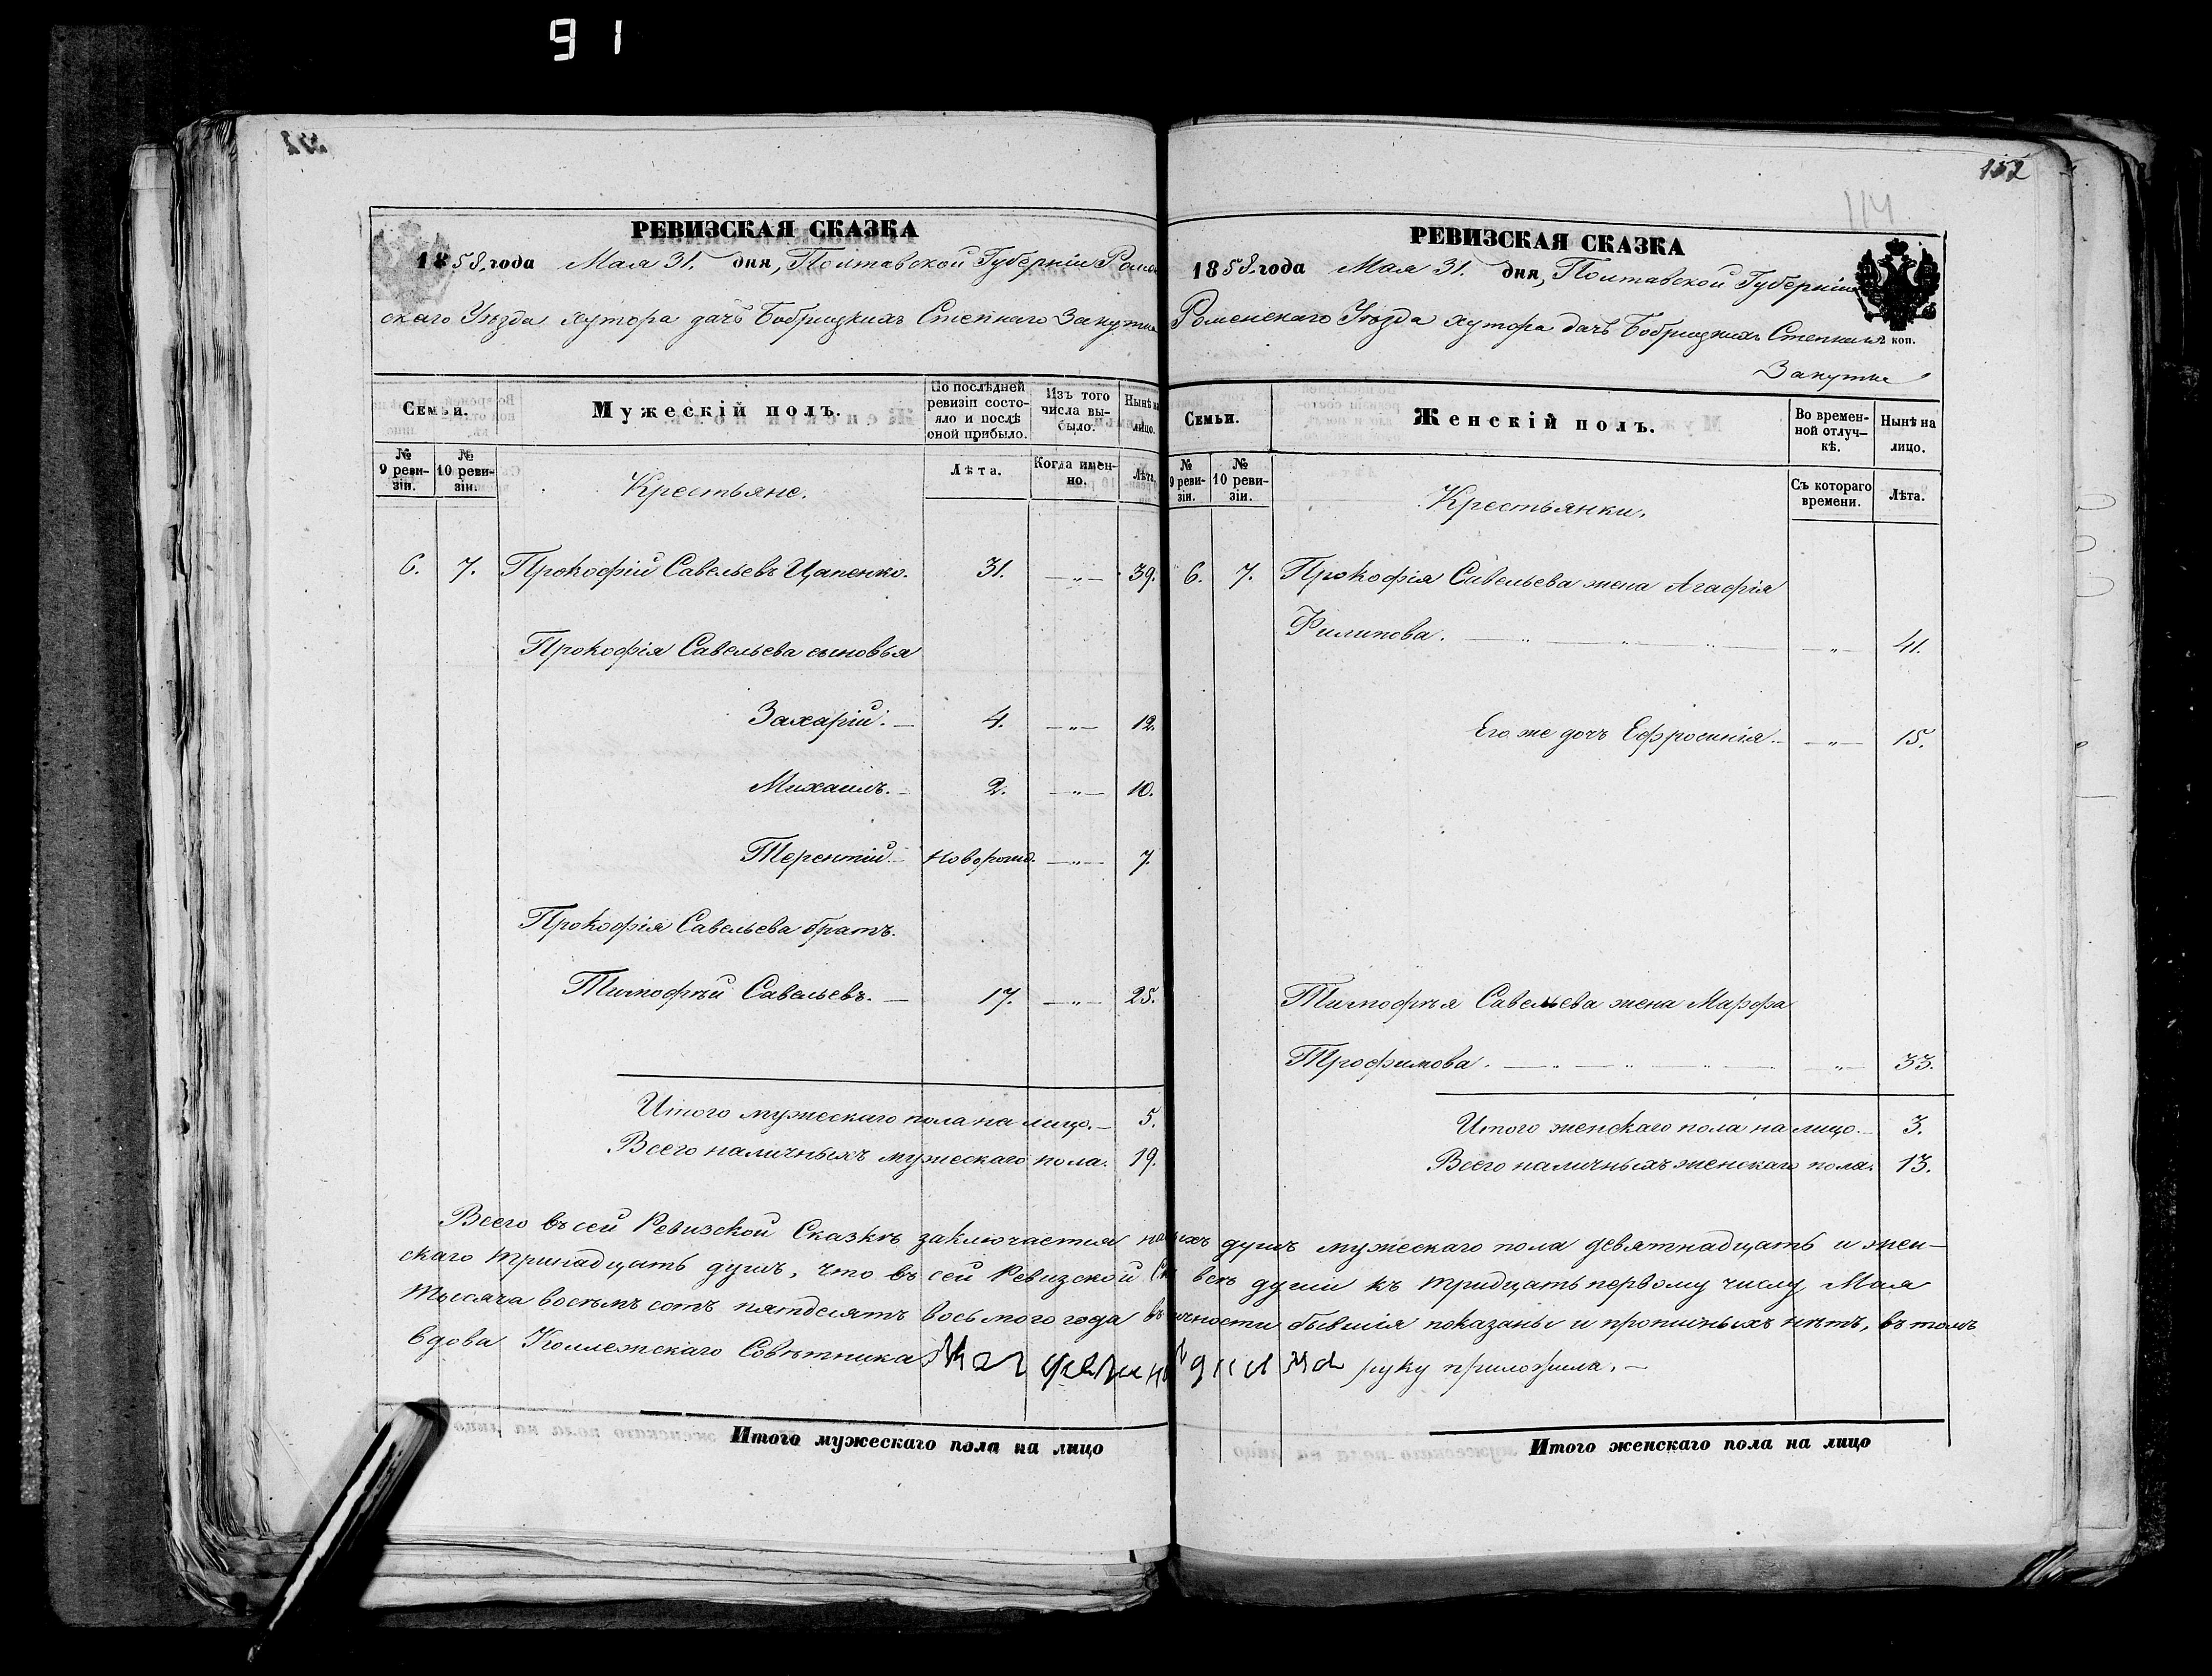 91
РЕВИЗСКАЯ СКАЗКА
1858. года Мая 31. дня, Полтавской Губерніи Ромен
скаго Уѣзда хутора дачѣ Бобрицкихъ Степнаго Закутка
Семьи.
Мужескій полъ.
По послѣдней ревизіи состояло и послѣ оной прибыло.
Изъ того числа выбыло.
Нынѣ на лицо.
№ 9 ревизіи.
№ 10 ревизіи.
Крестьяне.
Лѣта.
Когда именно.
Лѣта.
6. 7. Прокофій Савельевъ Цапенко. 31. —„— 39.
Прокофія Савельева сыновья
Захарій. — 4. —„— 12.
Михаилъ. — 2. —„— 10.
Терентій. — новорожд. —„— 7.
Прокофія Савельева братъ.
Тимофѣй Савельевъ. — 17. —„— 25.
Итого мужескаго пола на лицо. — 5.
Всего наличныхъ мужескаго пола. 19.
152
114
РЕВИЗСКАЯ СКАЗКА
1858. года Мая 31. дня, Полтавской Губерніи
Роменскаго Уѣзда хутора дачѣ Бобрицкихъ
коп.
Закутка
Семьи.
Женскій полъ.
Во временной отлучкѣ.
Нынѣ на лицо.
№ 9 ревизіи.
№ 10 ревизіи.
Крестьянки.
Съ котораго времени.
Лѣта.
6. 7. Прокофія Савельева жена Агафія
Филипова. —„— 41.
Его же дочь Ефросинія. — —„— 15.
Тимофѣя Савельева жена Марфа
Трофимова. —„— 33.
Итого женскаго пола на лицо. — 3.
Всего наличныхъ женскаго пола. 13.
Всего въ сей Ревизской Сказкѣ заключается душъ мужескаго пола девятнадцать и жен-
скаго тринадцать душъ, что въ сей Ревизской всѣ души къ тридцать первому числу Мая
тысяча восемьсотъ пятдесятъ восьмого года бывшія показаны и прописныхъ нѣтъ, въ томъ
вдова Коллежскаго Совѣтника руку приложила. —
Итого мужескаго пола на лицо
Итого женскаго пола на лицо